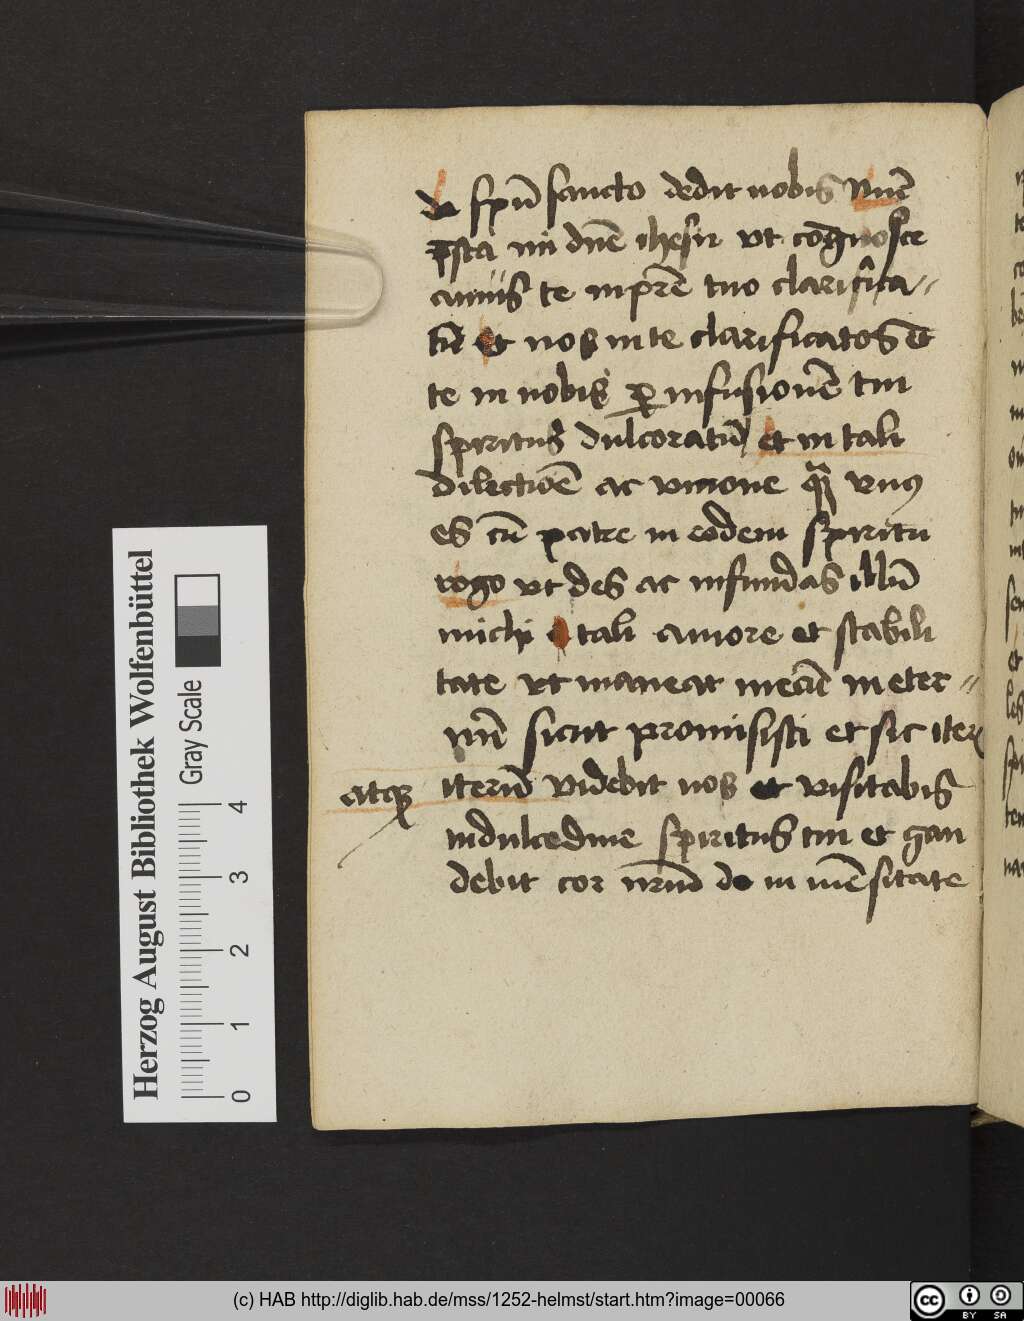 de spū sancto dedit nobis Nūc
p̄sta mi dn̄e ihesu vt cōgnosce
amus te in pr̄e tuo clarifica〃
tū et nos in te clarificatos et
te in nobis ꝑ infusionē tui
spiritus dulcoratū et in tali
dilectiōe ac vnione qua vnus
es cū patre in eodem spiritu
rogo vt des ac infundas illū
michi tali amore et stabili
tate vt maneat mecū in eter〃
nū sicut promisisti et sic iteꝝ
atqꝫ iterū videbit nos et visitabis
in dulcedine spiritus tui et gau
debit cor nr̄m de in mēsitate
Herzog August Bibliothek Wolfenbüttel
Gray Scale
0 1 2 3 4
(c) HAB http://diglib.hab.de/mss/1252-helmst/start.htm?image=00066
cc BY SA